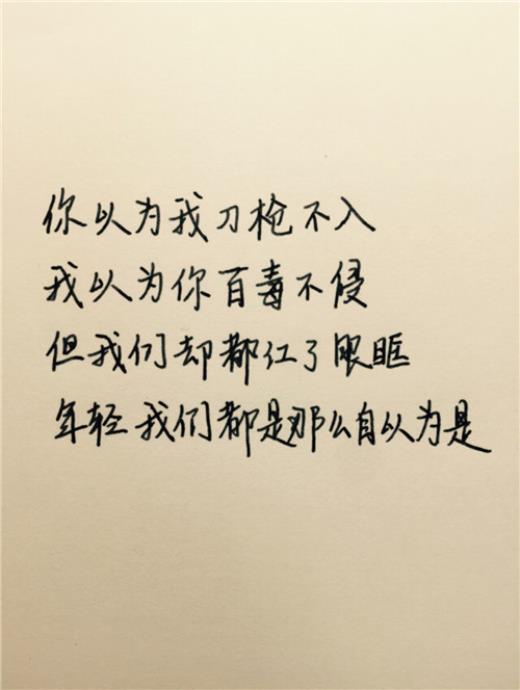 你以为我刀枪不入
我以为你百毒不侵
但我们却都红了眼眶
年轻我们都是那么自以为是